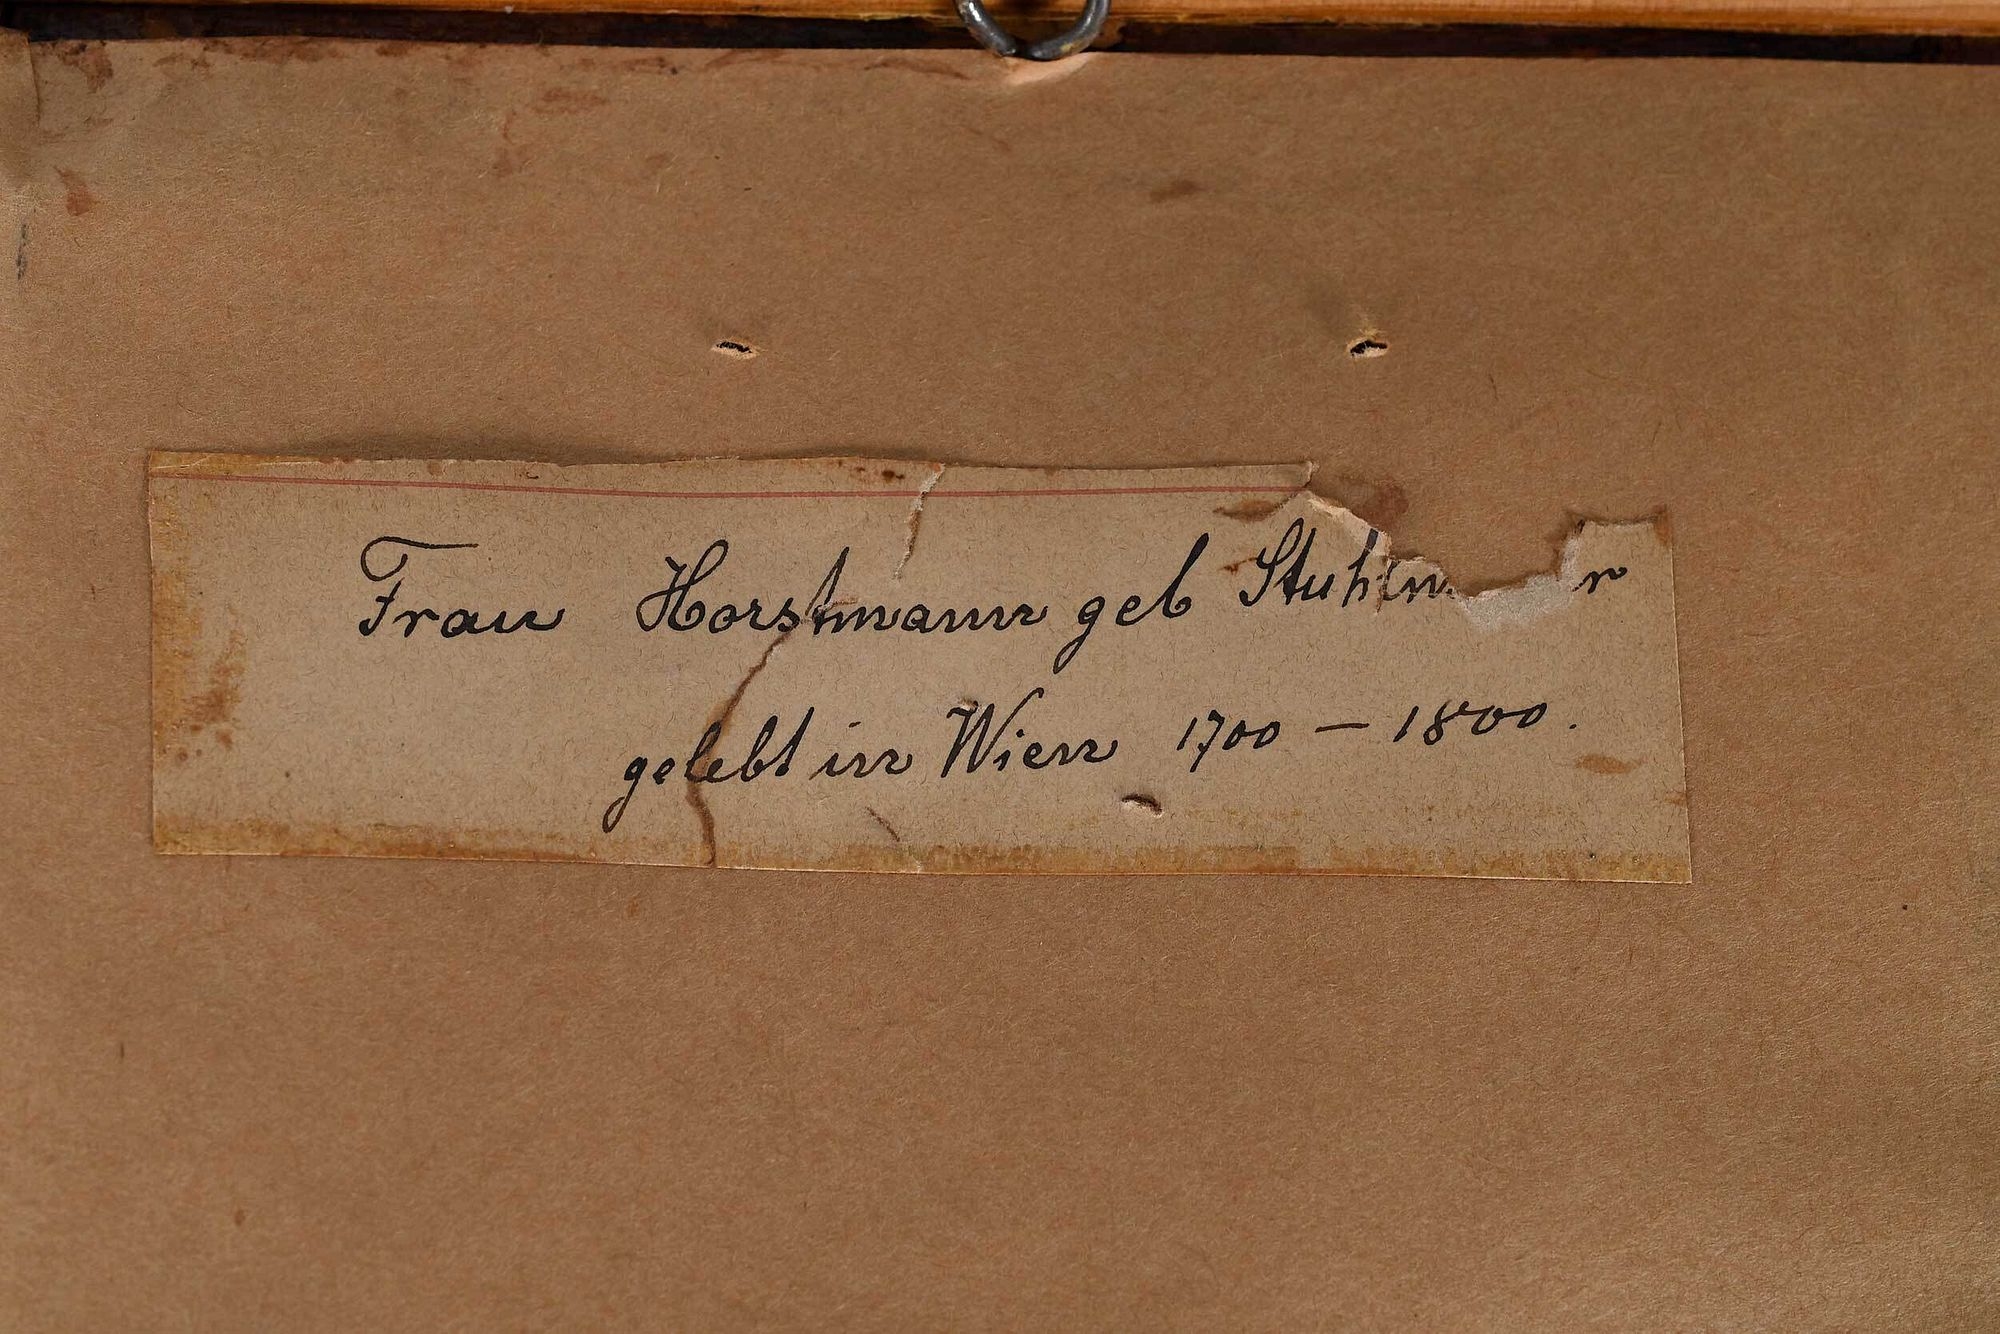 Frau Horstmann geb
gelebt in Wien 1700 – 1800.